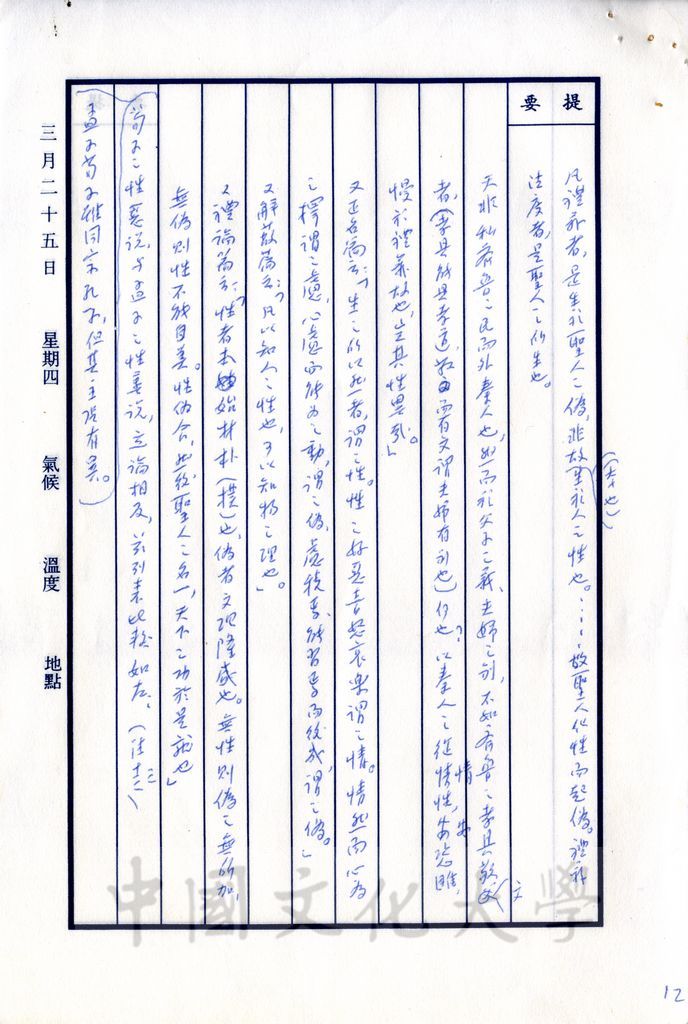 提要
凡禮義者，是生於聖人之偽，非故生於人之性也。……故聖人化性而起偽。禮義
（本也）
法度者，是聖人之所生也。
天非私齊魯之民而外秦人也，然而於父子之義，夫婦之別，不如齊魯之孝具敬父
文
者，（孝具能具孝道，敬而有文謂夫婦有別也）何也？以秦人之從情性，安恣睢，
慢於禮義故也，豈其性異哉。」
又正名篇言：「生之所以然者，謂之性。性之好惡喜怒哀樂謂之情。情然而心為
之擇謂之慮，心慮而能為之動，謂之偽，慮積焉，能習焉而後成，謂之偽。」
又解蔽篇言：「凡以知人之性也，可以知物之理也」。
又禮論篇言：「性者本始材朴（樸）也，偽者文理隆盛也。無性則偽之無所加，
無偽則性不能自美。性偽合，然後聖人之名一，天下之功於是就也」
荀子之性惡說，與孟子之性善說，立論相反，茲列表比較如左，（注十三）
孟子荀子雖同宗孔子，但其主張有異。）
三月二十五日 星期四 氣候 溫度 地點
中國文化大學
12